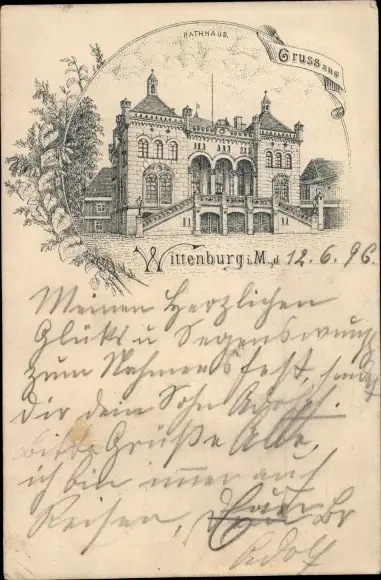 RATHHAUS.
Gruss aus
Wittenburg i. M., d 12. 6. 96.
Meinen Herzlichen
Glük u Segenswunsch
zum Nahmensfest, sendet
Dir dein Sohn Adolf.
bitte Grüße Alle,
ich bin immer auf
Reisen,
Adolf